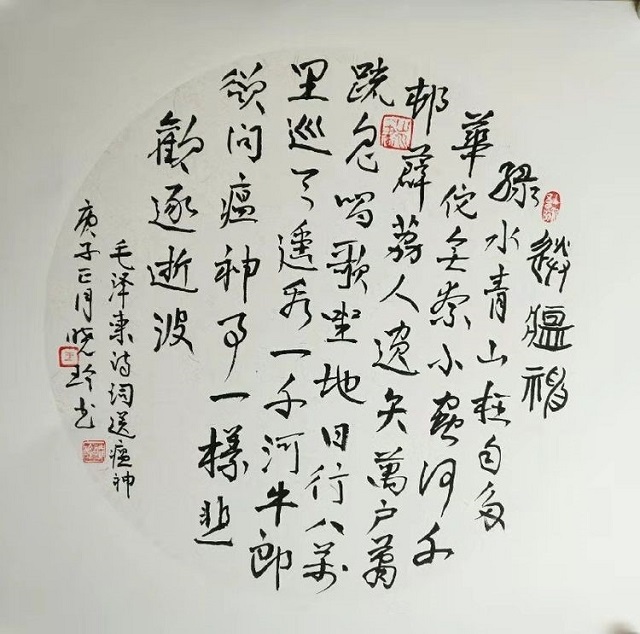 送瘟神
绿水青山枉自多
華佗無奈小蟲何千
邨薜荔人遗矢萬户萧
疏鬼唱歌坐地日行八萬
里巡天遥看一千河牛郎
欲问瘟神事一樣悲
歡逐逝波
毛泽東诗词送瘟神
庚子正月晓玲书